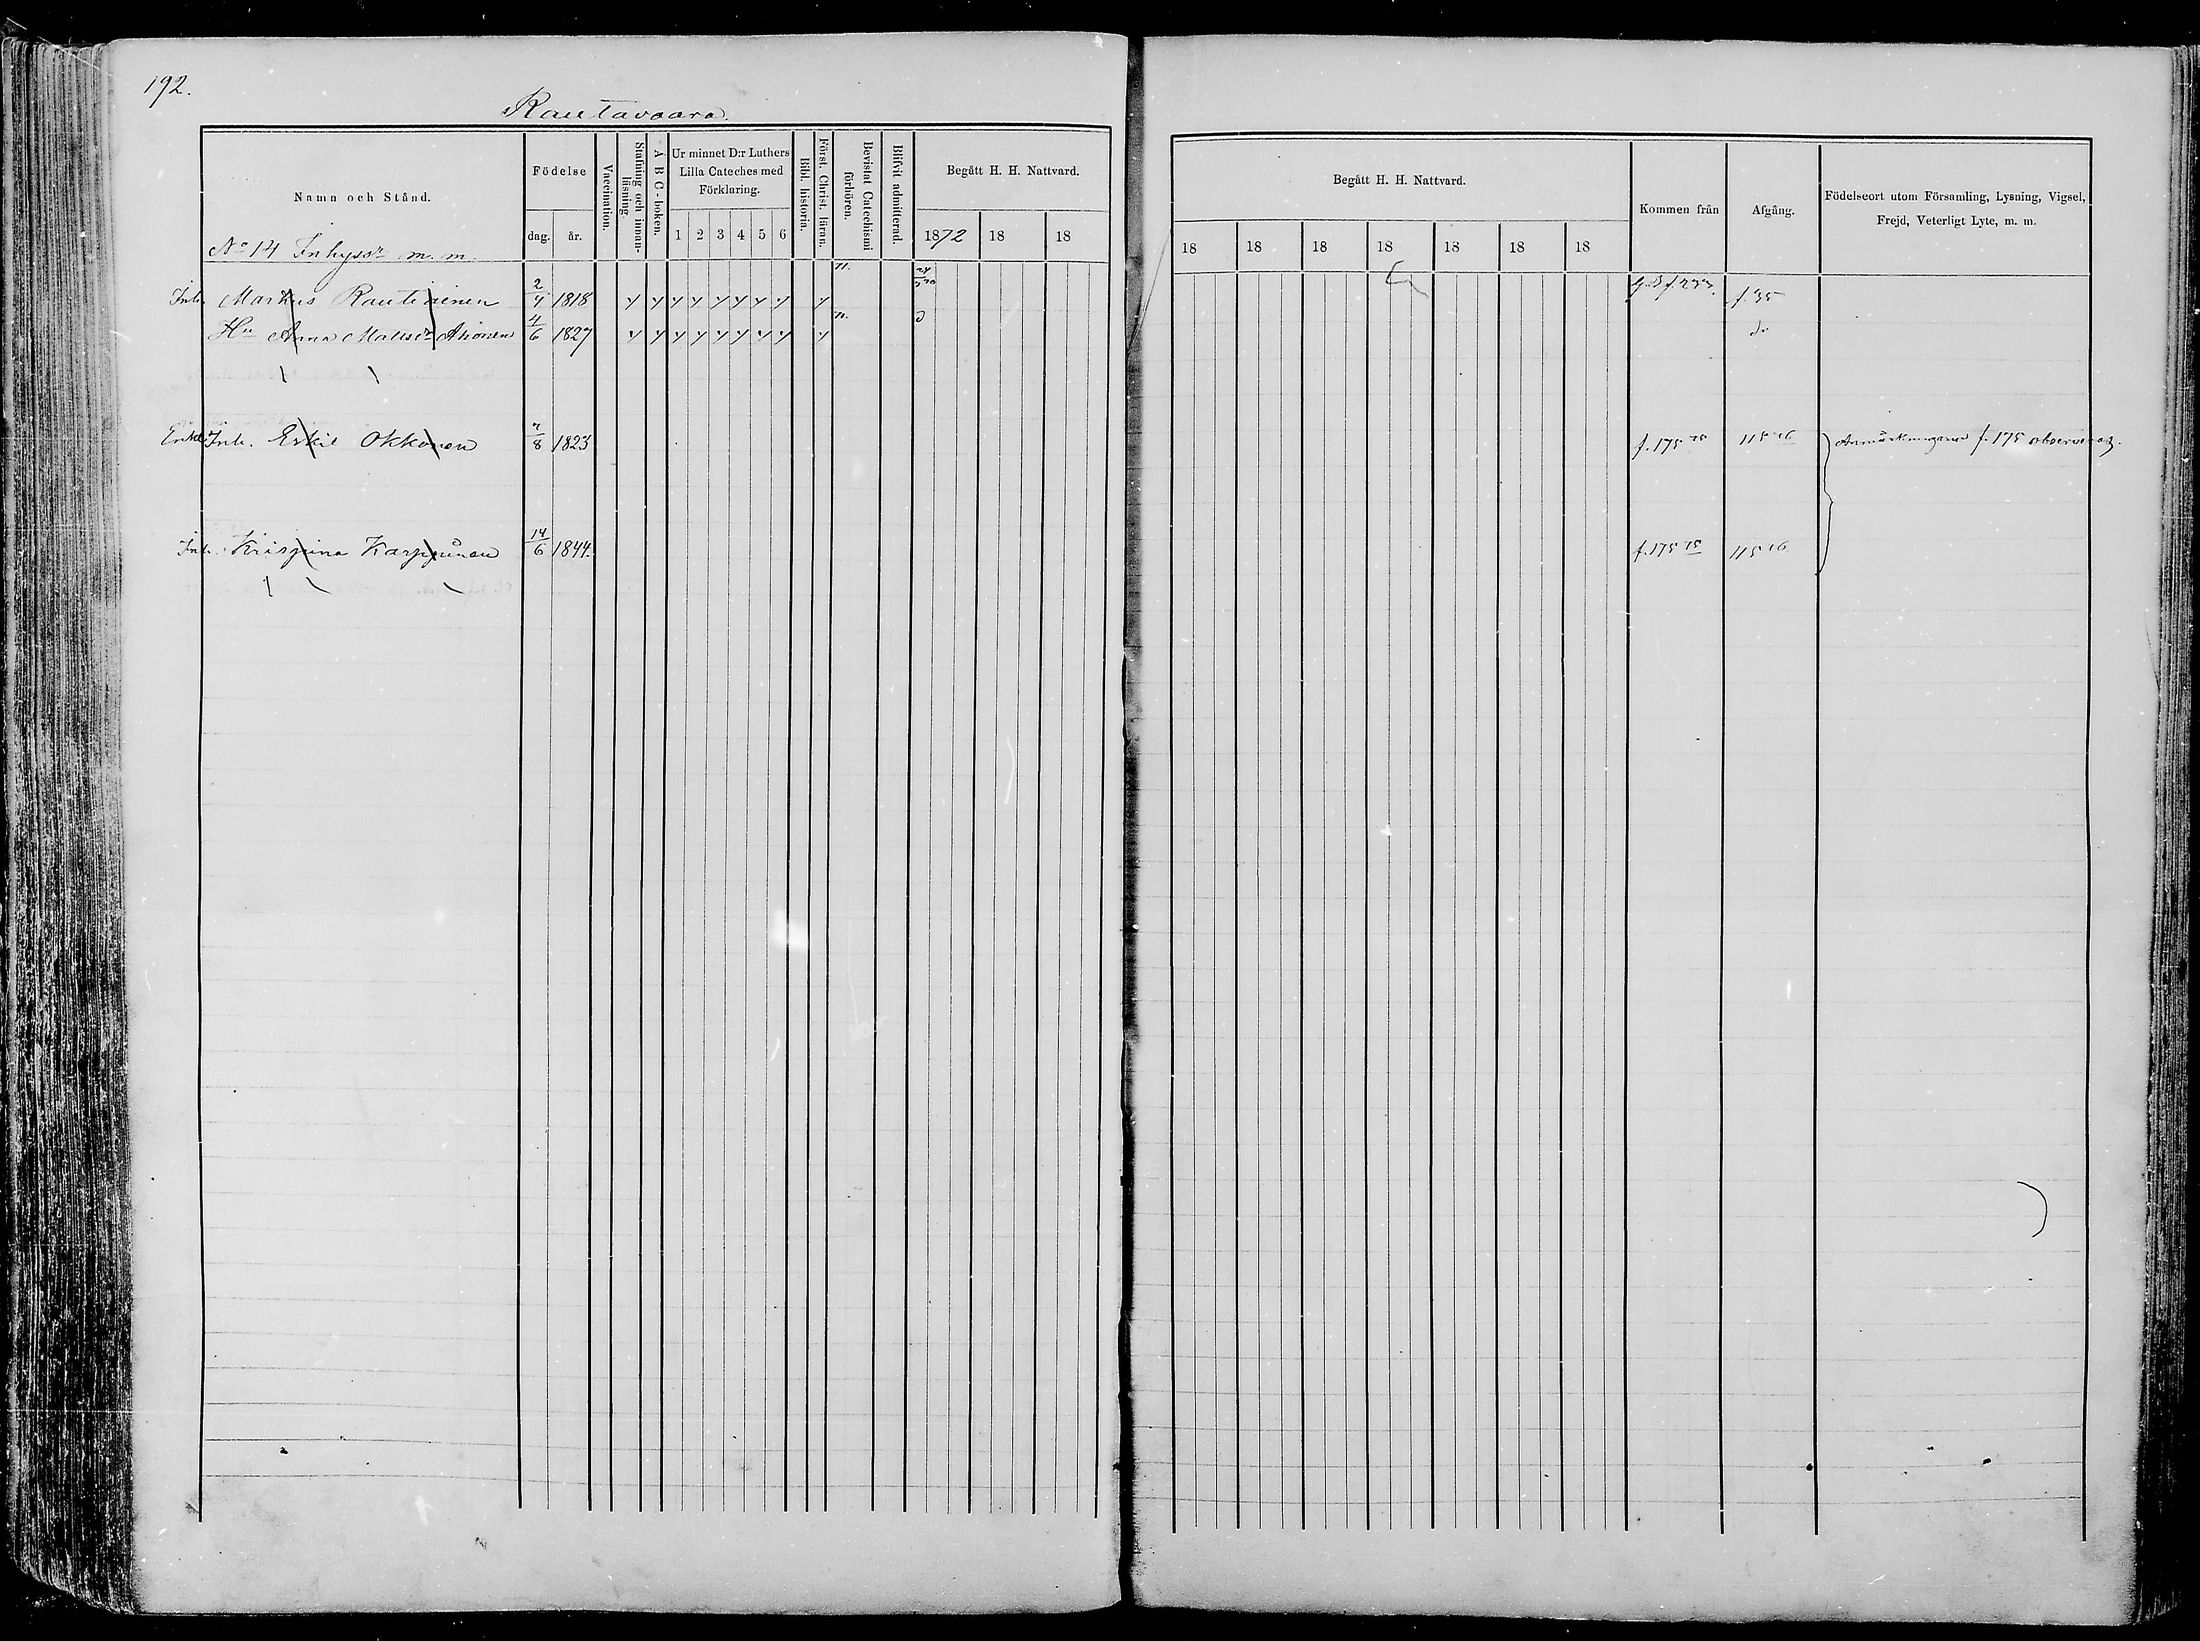 192.
Rautavaara.
Namn och Stånd.
Födelse
dag. år.
Vaccination.
Stafning och innan-läsning.
A B C-boken.
Ur minnet D:r Luthers Lilla Cateches med Förklaring.
1 2 3 4 5 6
Bibl. historia.
Först. Christ. läran.
Bevistat Catechismi förhören.
Blifvit admitterad.
Begått H. H. Nattvard.
1872 18 18
Begått H. H. Nattvard.
18 18 18 18 18 18 18
Kommen från
Afgång.
Födelseort utom Församling, Lysning, Vigsel, Frejd, Veterligt Lyte, m. m.
No 14 Inhyssr m. m.
Inh. Markus Rautiainen 2/4 1818 71. G.B. f. 233. f. 35
Hu Anna Matisdr Ahonen 4/6 1827 71. do
Enkl. Inh. Eskil Okkonen 7/8 1823 f. 175 75 115 76 Anmärkningarne f. 175 observeras.
Inh. Kristina Karppinen 14/6 1844. f. 175 75 115 76